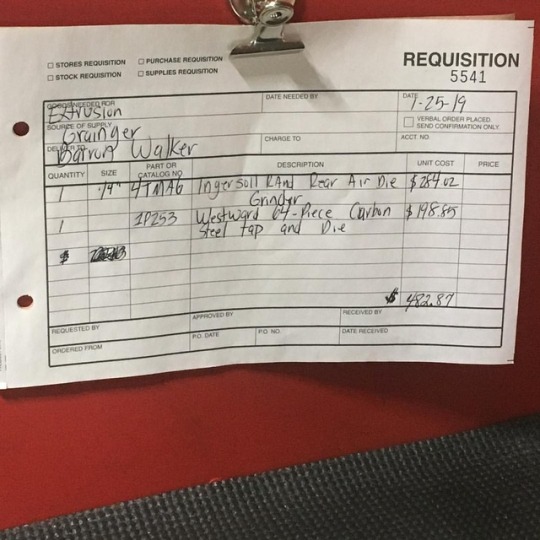 ☐ STORES REQUISITION ☐ PURCHASE REQUISITION
☐ STOCK REQUISITION ☐ SUPPLIES REQUISITION
REQUISITION
5541
GOODS NEEDED FOR Extrusion DATE NEEDED BY DATE 1-25-19
SOURCE OF SUPPLY Grainger ☐ VERBAL ORDER PLACED.
SEND CONFIRMATION ONLY.
DELIVER TO Walker CHARGE TO ACCT NO.
QUANTITY SIZE PART OR CATALOG NO. DESCRIPTION UNIT COST PRICE
1 1/4" 4TMA6 Ingersoll RAnd Rear Air Die $284.02
Grinder
1 1P253 Westward 64-Piece Carbon $198.85
Steel tap and Die
$
$ 482.87
REQUESTED BY APPROVED BY RECEIVED BY
ORDERED FROM P.O. DATE P.O. NO. DATE RECEIVED